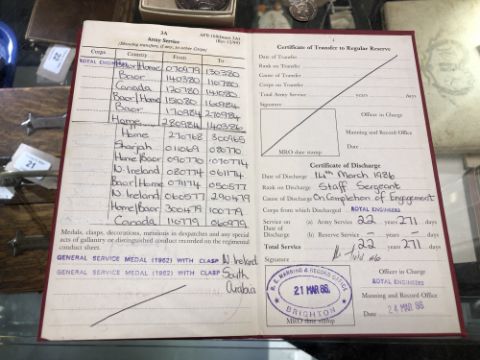 3A
Army Service
(Showing transfers, if any, to other Corps)
Corps Country From To
ROYAL ENGINEERS Baor/Home 070979 130380
Baor 140380 110780
Canada 120780
Baor/Home 150980 160984
Baor 170984 270984
Home 280984 140386
Home 270768 300965
Sharjah 011069 080770
Home/Baor 090770 070774
N. Ireland 080774 061174
Baor/Home 071174 050577
N. Ireland 060577 290479
Home/Baor 300479 100779
Canada 110779 060979
Medals, clasps, decorations, mentions in despatches and any special
acts of gallantry or distinguished conduct recorded on the regimental
conduct sheet.
GENERAL SERVICE MEDAL (1962) WITH CLASP N. Ireland
GENERAL SERVICE MEDAL (1962) WITH CLASP South
Arabia
Certificate of Transfer to Regular Reserve
Date of Transfer
Rank on Transfer
Cause of Transfer
Corps on Transfer
Total Army Service years days
Signature
Officer in Charge
Manning and Record Office
Date
MRO date stamp
Certificate of Discharge
Date of Discharge 14th March 1986
Rank on Discharge Staff Sergeant
Cause of Discharge On Completion of Engagement
Corps from which Discharged ROYAL ENGINEERS
Service on Date of Discharge (a) Army Service 22 years 271 days
(b) Reserve Service – years – days
Total Service 22 years 271 days
Signature
Officer in Charge
ROYAL ENGINEERS
Manning and Record Office
Date 24 MAR 86
R.E. MANNING & RECORD OFFICE
21 MAR 86
BRIGHTON
MRO date stamp
22
21